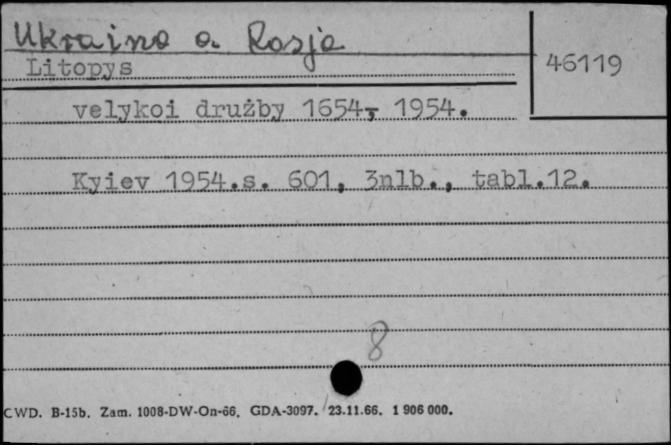 Ukraina a Rosja
Litopys
46119
velykoi drużby 1654-, 1954.
Kyiev 1954.s. 601, 3nlb., tabl.12.
8
CWD. B-15b. Zam. 1008-DW-On-66. GDA-3097. 23.11.66. 1 906 000.